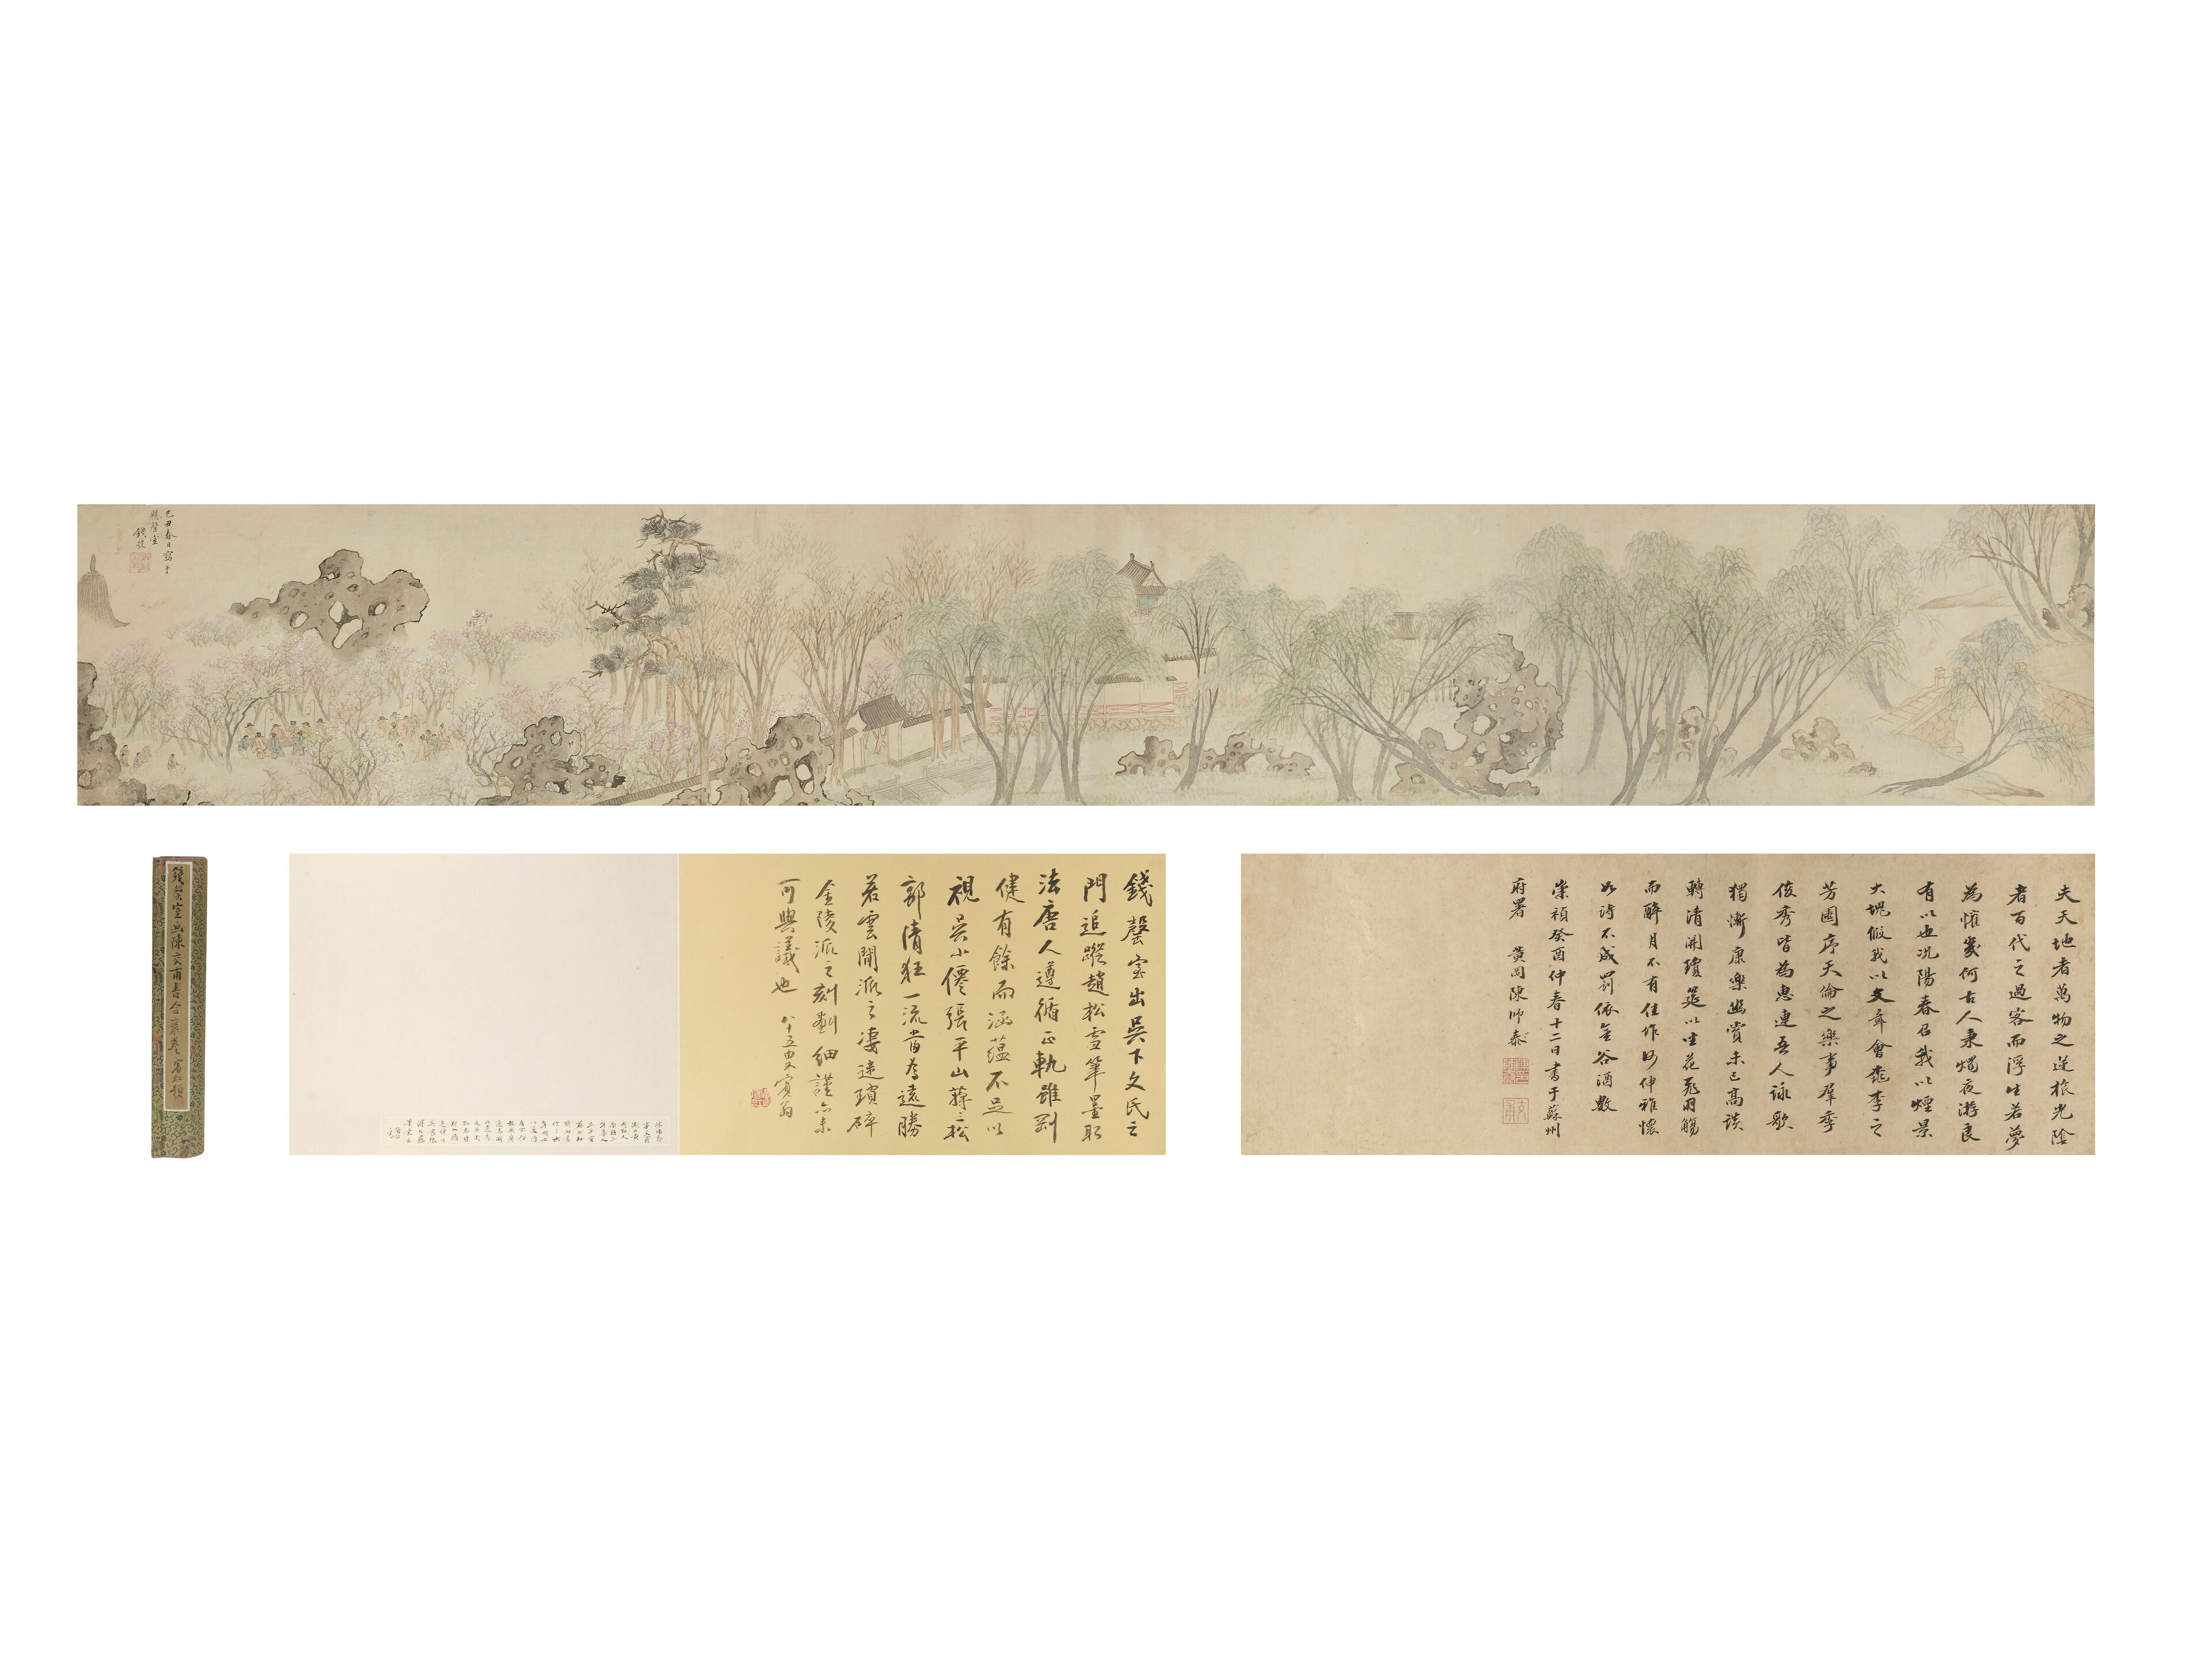 己丑春日寫于
懸磬室
錢穀
夫天地者萬物之逆旅光陰
者百代之過客而浮生若夢
為懽幾何古人秉燭夜遊良
有以也況陽春召我以煙景
大塊假我以文章會桃李之
芳園序天倫之樂事羣季
俊秀皆為惠連吾人詠歌
獨慚康樂幽賞未已高談
轉清開瓊筵以坐花飛羽觴
而醉月不有佳作何伸雅懷
如詩不成罰依金谷酒數
崇禎癸酉仲春十二日書于蘇州
府署 黃岡陳師泰
錢罄室出吳下文氏之
門追蹤趙松雪筆墨取
法唐人遵循正軌雖剛
健有餘而涵蘊不足以
視吳小僊張平山蔣三松
郭清狂一流當為遠勝
若雲間派之淒迷瑣碎
金陵派之刻劃細謹亦未
可與議也 八十五叟賓翁
錢罄室畫陳交甫書合裝卷